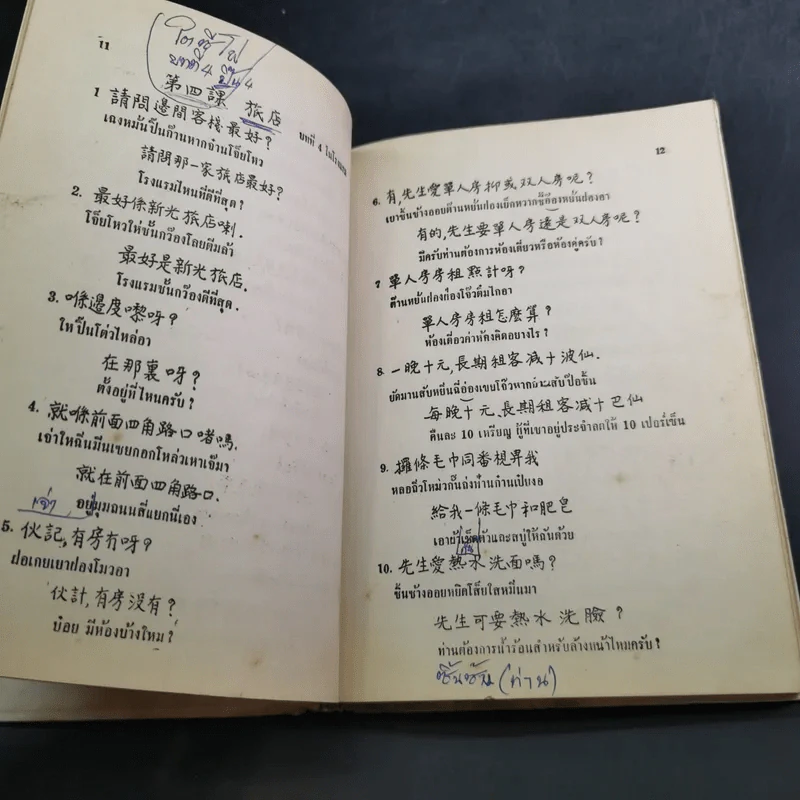 11
บทที่ 4
第四課 旅店
บทที่ 4 ในโรงแรม
1 請問邊間客棧最好?
เฉงหมั่นปิ๊นก๊านหากจ๋านโจ๊ยโหว
請問那一家旅店最好?
โรงแรมไหนที่ดีที่สุด?
2. 最好係新光旅店喇.
โจ๊ยโหวให่ซั้นกว๊องโลยตีมล้า
最好是新光旅店.
โรงแรมซั้นกว๊องดีที่สุด.
3. 喺邊度嚟呀?
ให่ปิ๊นโต่วไหล่อา
在那裏呀?
ตั้งอยู่ที่ไหนครับ?
4. 就喺前面四角路口啫嗎.
เจ๋าใหฉิ่นมีนเซยกอกโหล่วเหาเจ๊มา
就在前面四角路口.
อยู่มุมถนนสี่แยกนี่เอง
5. 伙記,有房冇呀?
ฝอเกยเยาฝองโมวอา
伙計,有房没有?
บ๋อย มีห้องบ้างไหม?
12
6. 有,先生愛單人房抑或双人房呢?
เยาซิ้นซ้างออยต๊านหยั่นฝองเย็กหวากซ๊องหยั่นฝองอา
有的,先生要單人房還是双人房呢?
มีครับท่านต้องการห้องเดี่ยวหรือห้องคู่ครับ?
7 單人房房租點計呀?
ต๊านหยั่นฝองก๋องโจ๊วติ๋มไกอา
單人房房租怎麽算?
ห้องเดี่ยวค่าห้องคิดอย่างไร?
8. 一晚十元,長期租客减十波仙.
ยัดมานสับหยี่นฉี่อ๋องเขยโจ๊วหากก๋ามสับป๊อซิ้น
每晚十元、長期租客减十巴仙
คืนละ 10 เหรียญ ผู้ที่เขาอยู่ประจำลดให้ 10 เปอร์เซ็น
9. 攞條毛巾同番梘畀我
หลอถิ่วโหม่วกั๊นถ่งฟ้านก๊านเปยงอ
給我一條毛巾和肥皂
เอาผ้าเช็ดตัวและสบู่ให้ฉันด้วย
10. 先生愛熱水洗面嗎?
ซิ้นซ้างออยหยิดโส็ยใสหมิ่นมา
先生可要熱水洗臉?
ท่านต้องการน้ำร้อนสำหรับล้างหน้าไหมครับ?
ซิ้นซ้าง (ท่าน)